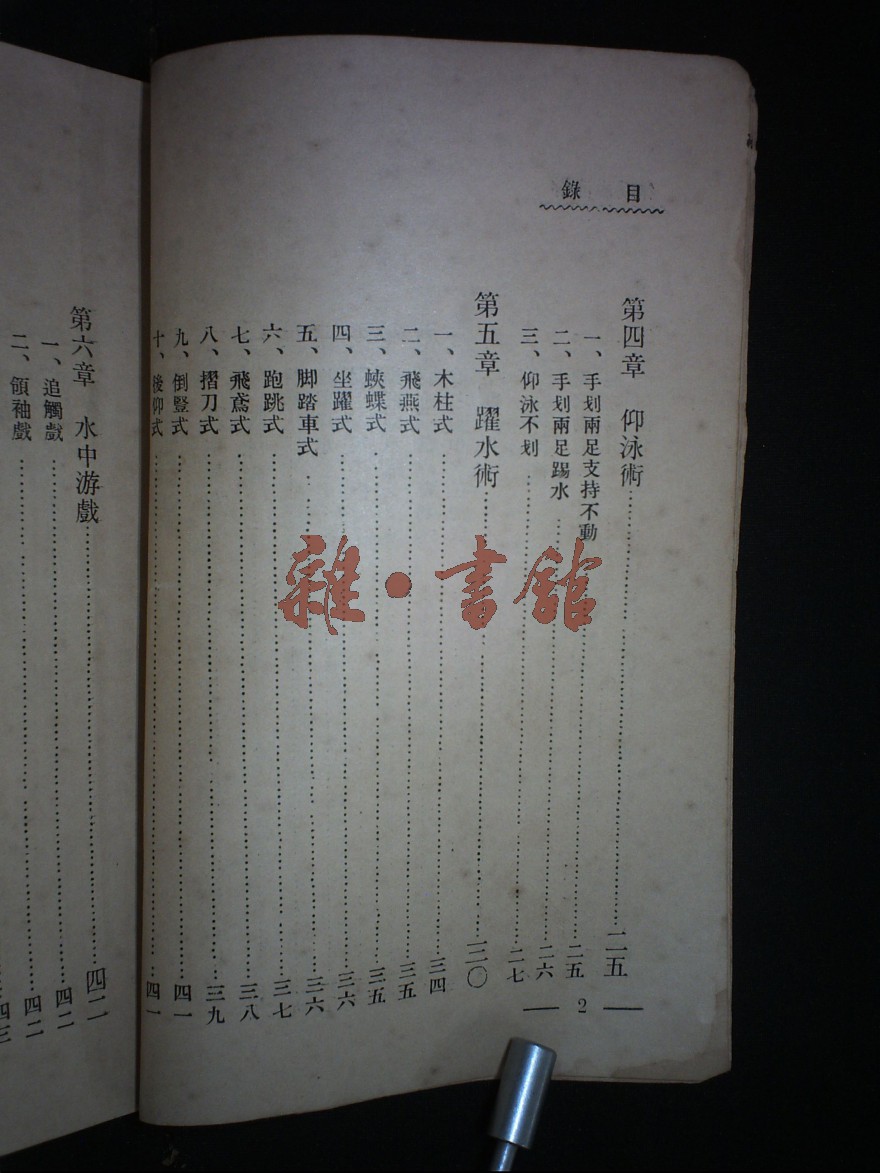 目錄
第四章 仰泳術……二五
一、手划兩足支持不動……二五
二、手划兩足踢水……二六
三、仰泳不划……二七
第五章 躍水術……三〇
一、木柱式……三四
二、飛燕式……三五
三、蛺蝶式……三五
四、坐躍式……三六
五、脚踏車式……三六
六、跑跳式……三七
七、飛鳶式……三八
八、摺刀式……三九
九、倒豎式……四一
十、後仰式……四一
— 2 —
第六章 水中游戲……四二
一、追觸戲……四二
二、領袖戲……四二
四三
雜·書館